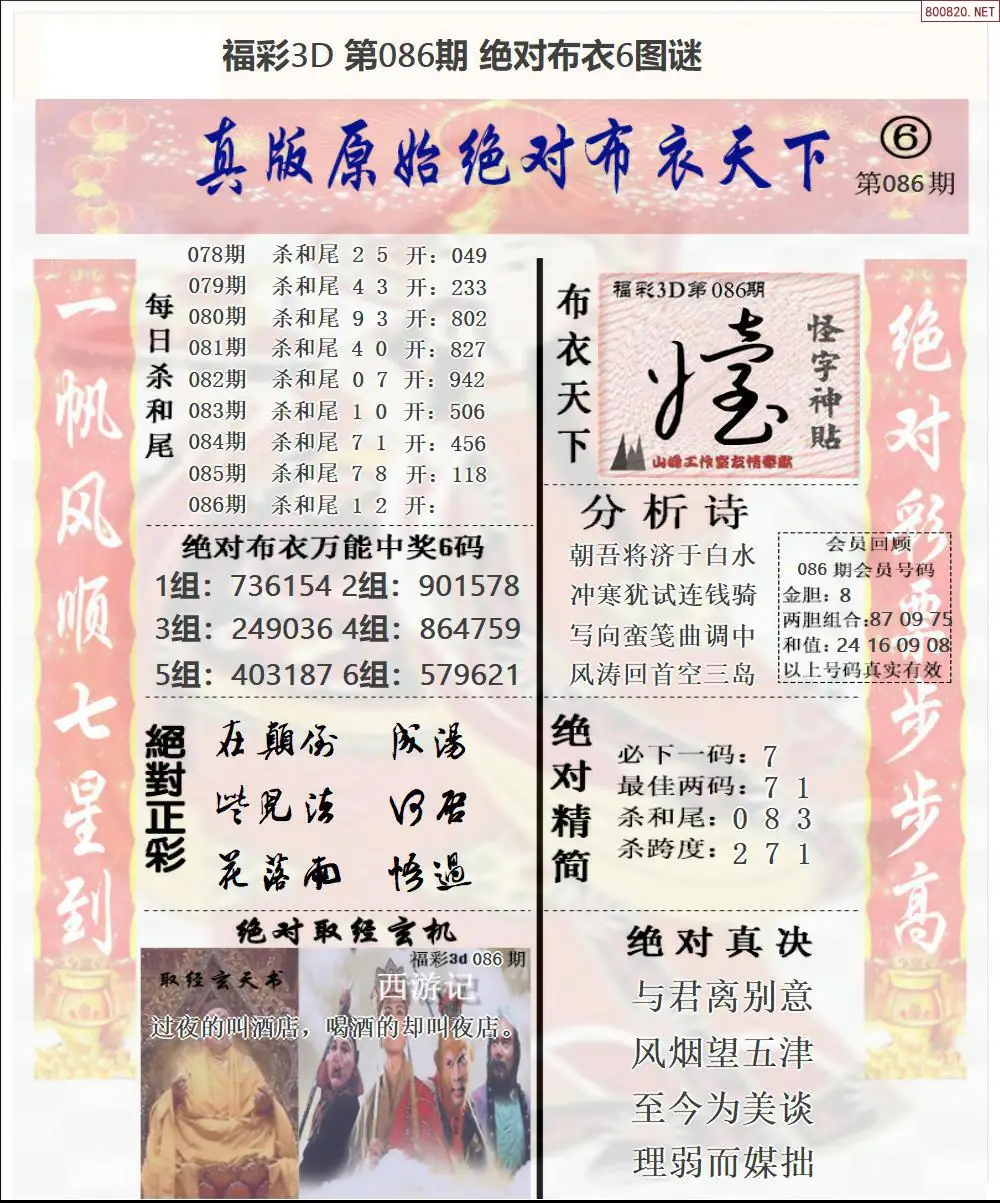 800820.NET
福彩3D 第086期 绝对布衣6图谜
真版原始绝对布衣天下
6
第086期
一帆风顺七星到
每日杀和尾
078期 杀和尾 2 5 开：049
079期 杀和尾 4 3 开：233
080期 杀和尾 9 3 开：802
081期 杀和尾 4 0 开：827
082期 杀和尾 0 7 开：942
083期 杀和尾 1 0 开：506
084期 杀和尾 7 1 开：456
085期 杀和尾 7 8 开：118
086期 杀和尾 1 2 开：
绝对布衣万能中奖6码
1组：736154 2组：901578
3组：249036 4组：864759
5组：403187 6组：579621
絕對正彩
在顛倒 成湯
些見法 何召
花落南 悟過
绝对取经玄机
福彩3d 086 期
取经玄天书
西游记
过夜的叫酒店，喝酒的却叫夜店。
布衣天下
福彩3D第086期
怪字神贴
山峰工作室友情奉献
分析诗
朝吾将济于白水
冲寒犹试连钱骑
写向蛮笺曲调中
风涛回首空三岛
会员回顾
086 期会员号码
金胆：8
两胆组合:87 09 75
和值：24 16 09 08
以上号码真实有效
绝对精简
必下一码：7
最佳两码：7 1
杀和尾：0 8 3
杀跨度：2 7 1
绝对真决
与君离别意
风烟望五津
至今为美谈
理弱而媒拙
绝对彩票步步高